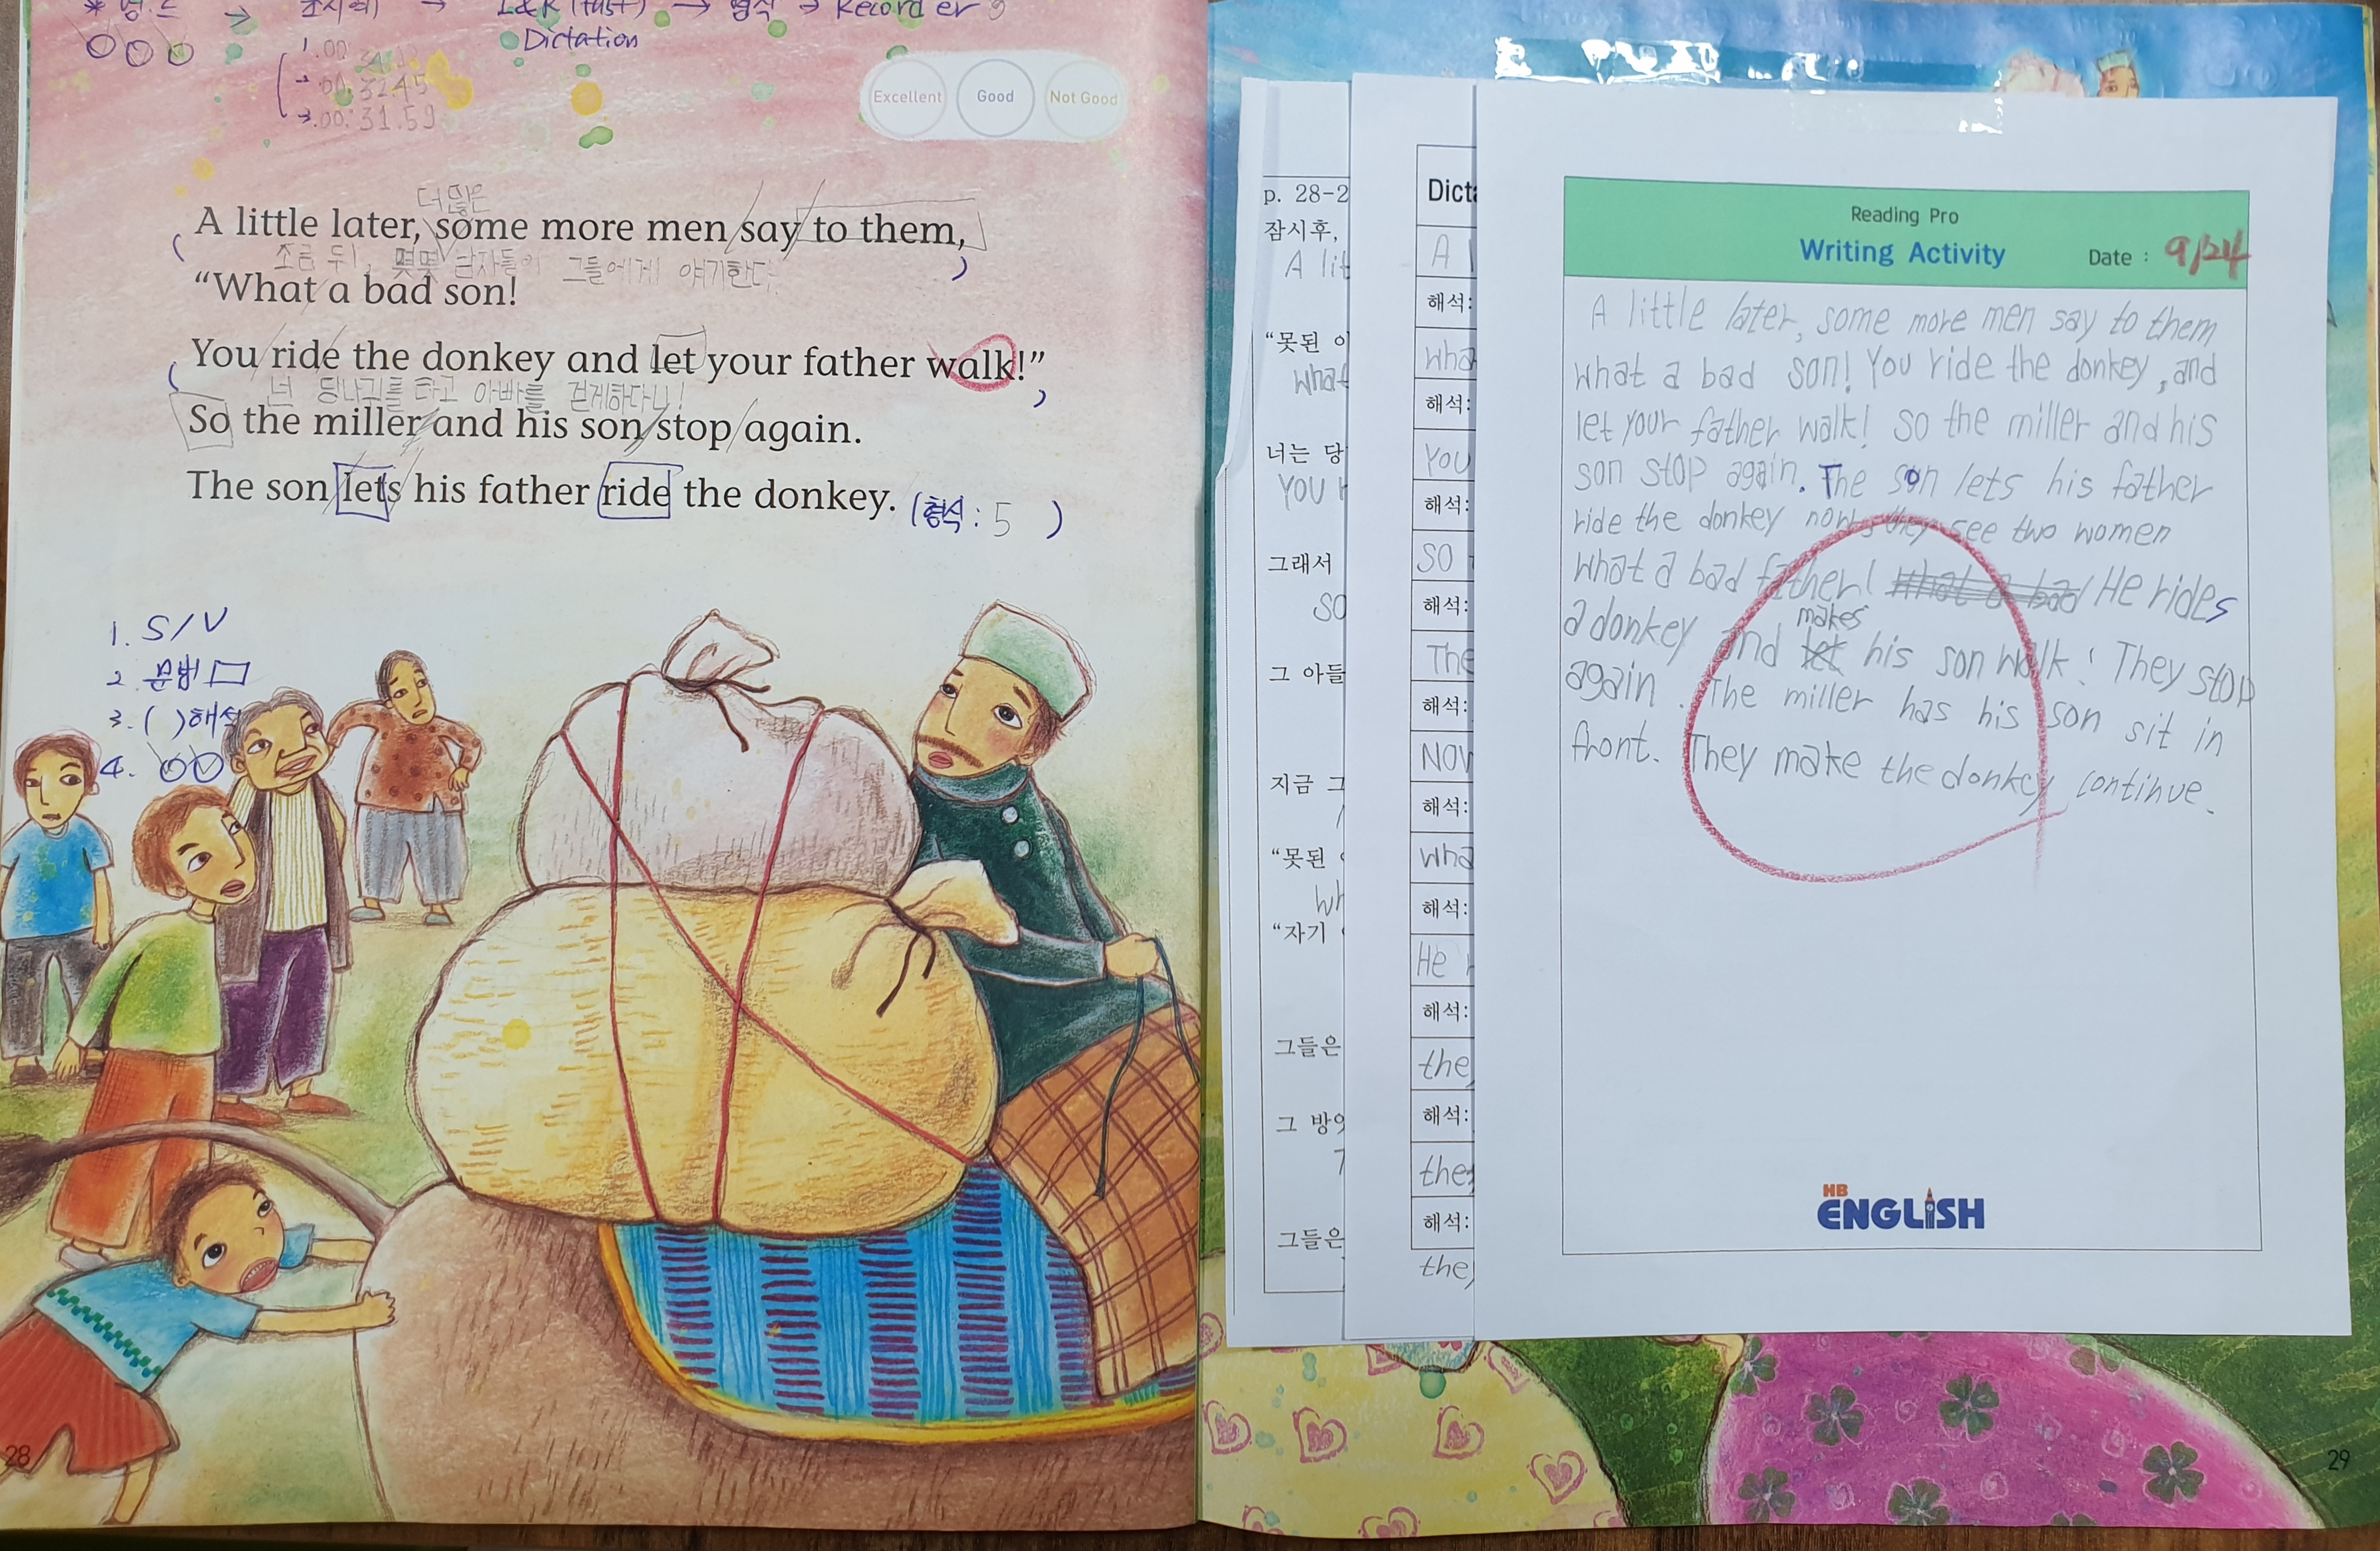 L&R (fast) → 형식 → Recorder 9
Dictation
1.00
2.00:32.45
3.00:31.59
Excellent Good Not Good
더 많은
A little later, some more men say to them,
조금 뒤, 몇몇 남자들이 그들에게 얘기한다.
“What a bad son!
You ride the donkey and let your father walk!”
넌 당나귀를 타고 아빠를 걷게하다니!
So the miller and his son stop again.
The son lets his father ride the donkey.
(형식: 5 )
1. S/V
2. 문법
3. ( )해석
4.
28
p. 28-2
잠시후,
A lit
“못된 이
What
너는 당
You r
그래서
so
그 아들
지금 그
“못된
wh
“자기
그들은
그 방앗
T
그들은
Dicta
A l
해석:
wha
해석:
You
해석:
so
해석:
The
해석:
Now
해석:
wha
해석:
He r
해석:
they
해석:
the
해석:
they
Reading Pro
Writing Activity Date : 9/24
A little later, some more men say to them
what a bad son! You ride the donkey, and
let your father walk! so the miller and his
son stop again. The son lets his father
ride the donkey now, they see two women
what a bad father! what a bad He rides
makes
a donkey and let his son walk! They stop
again. The miller has his son sit in
front. They make the donkey continue.
HB
ENGLISH
29